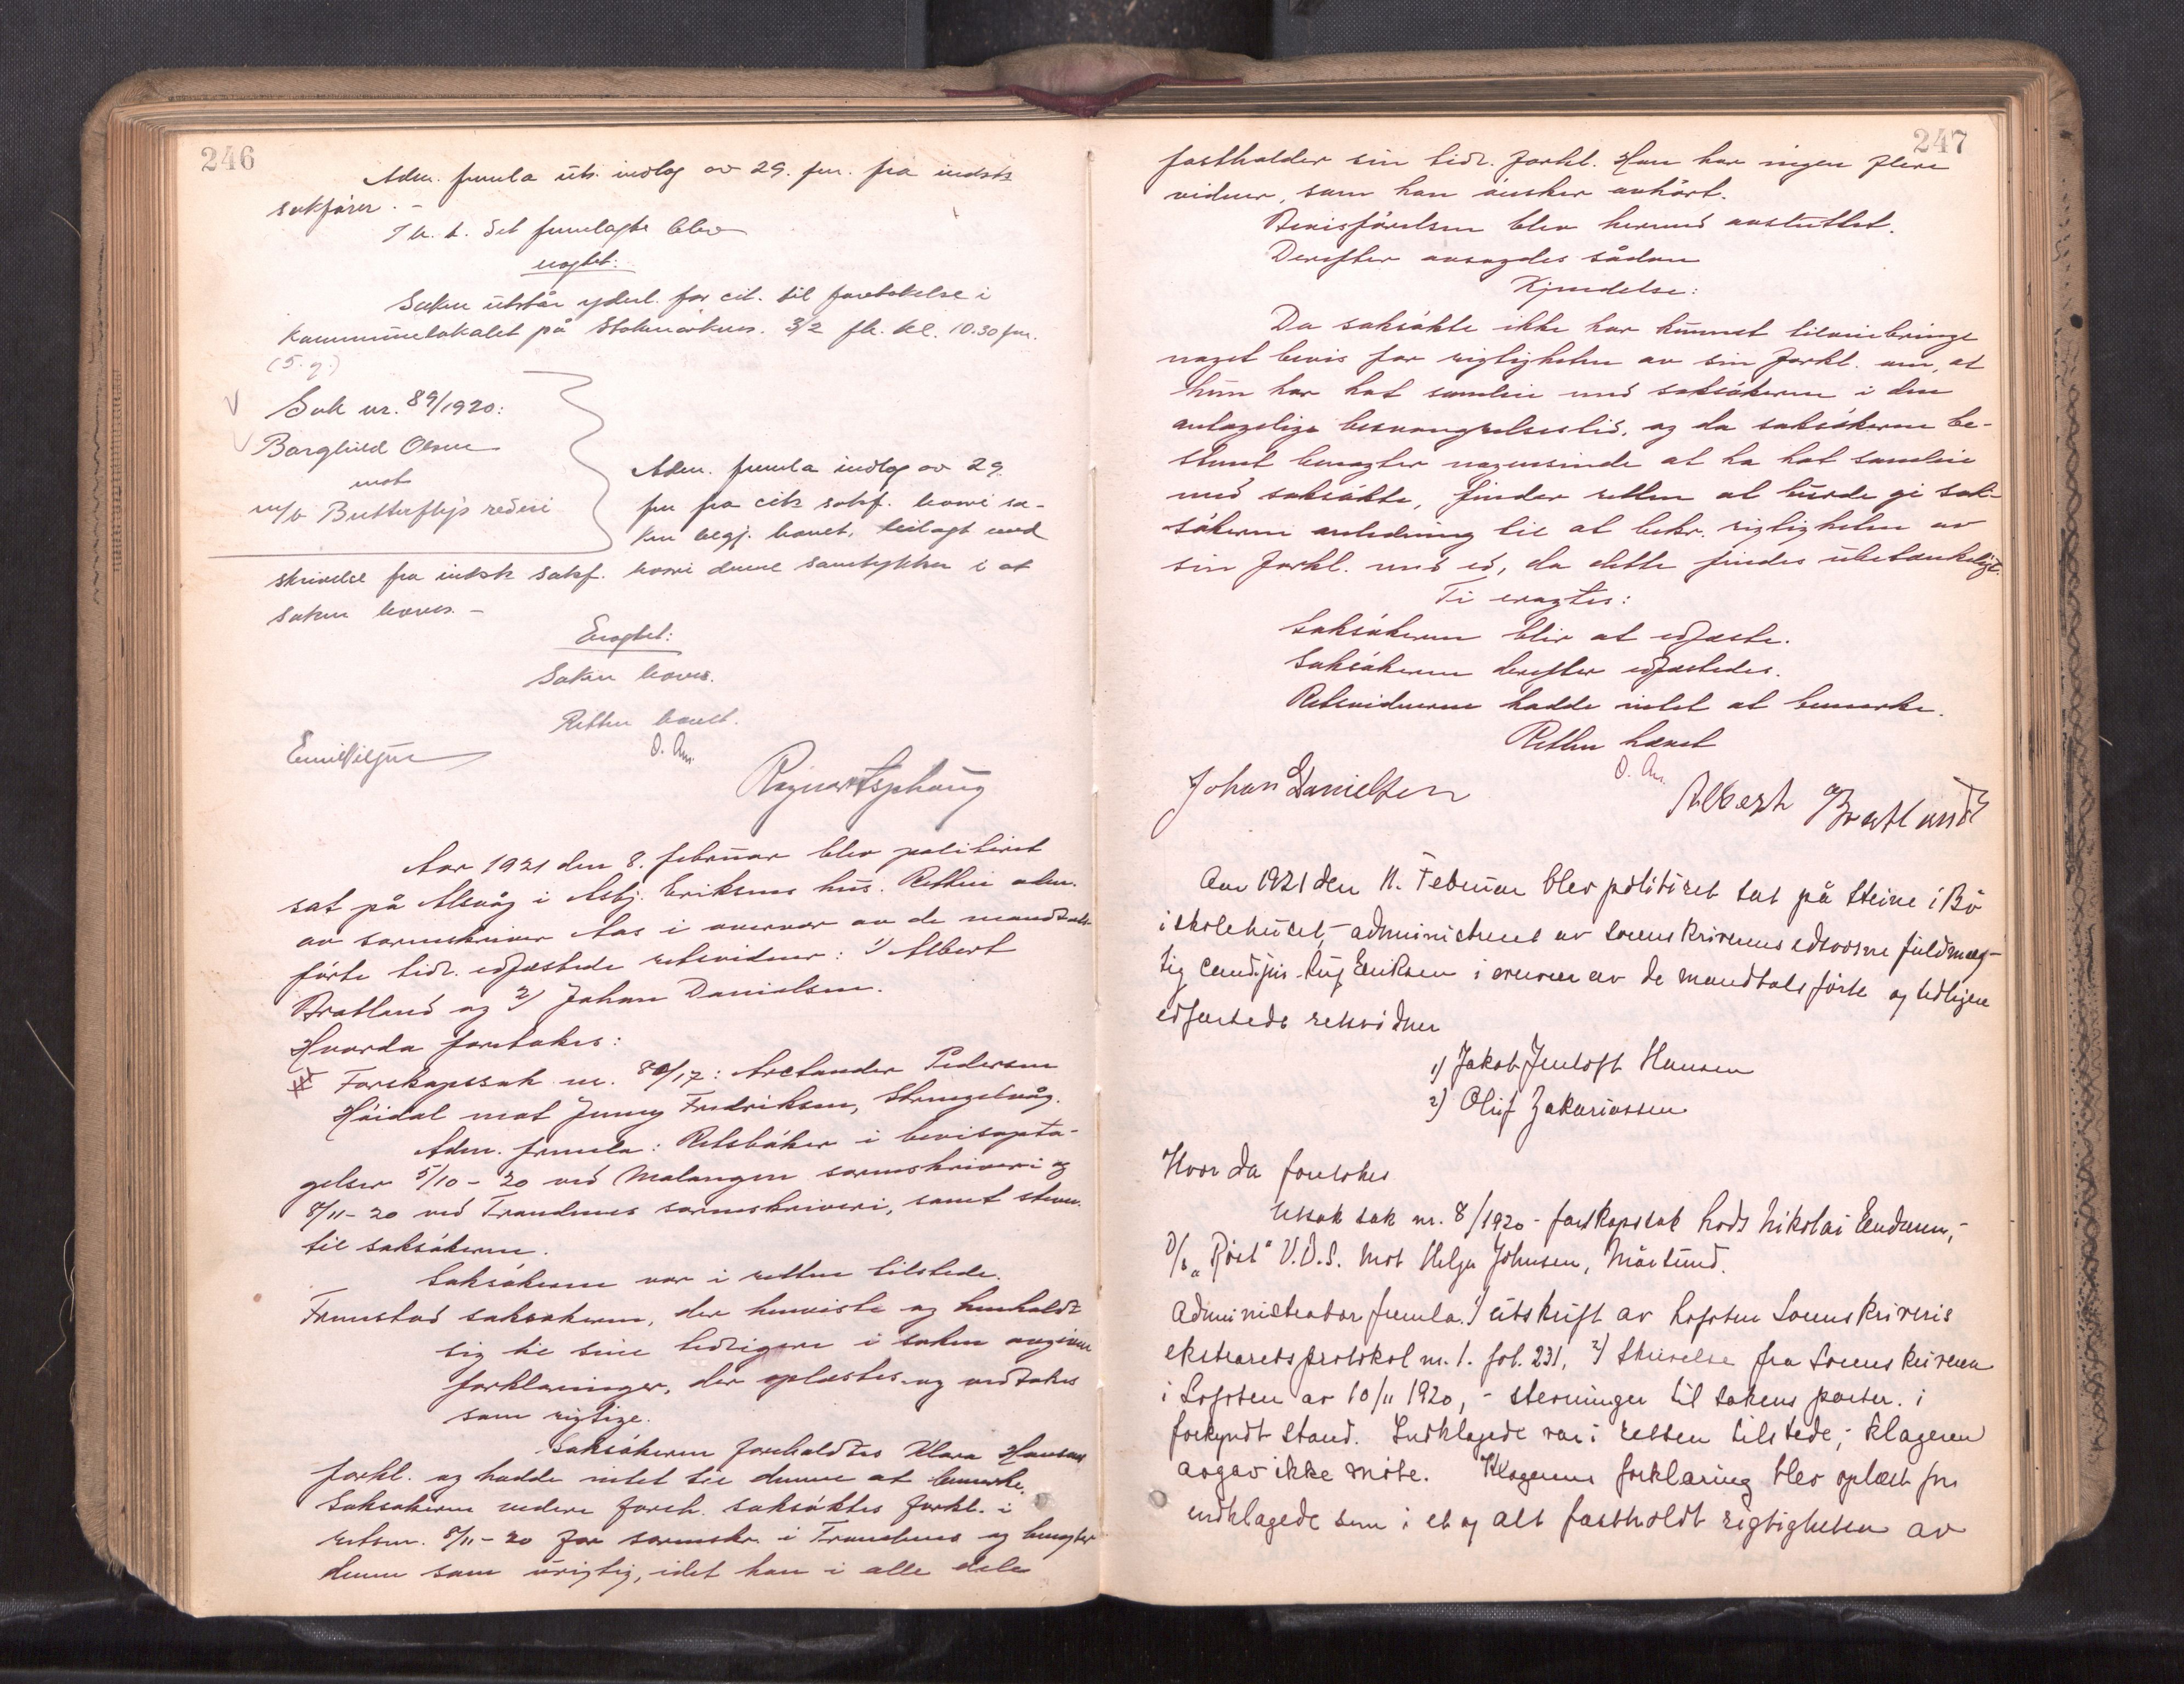 246
Adm. fremla uts. indlæg av 29. fm. fra indstr
sakfører. -
I h. t. det fremlagte blev
eragtet:
Saken utstår yderl. for cit. til foretakelse i
kommunelokalet på Stokmarknes. 3/2 fk. kl. 10.30 fm.
(5. g.)
Sak nr. 89/1920:
Borghild Olsen
mot
m/b Butterfly's rederi
Adm. fremla indlæg av 29.
fm fra cits sakf. hvori sa-
ken begj. hævet, bilagt med
skrivelse fra indstr sakf. hvori denne samtykker i at
saken hæves. -
Eragtet:
Saken hæves.
Retten hævet.
O. Aas.
Emil Nilsen
Ragnar
Aar 1921 den 8. februar blev politiret
sat på Alsvåg i Asbj. Eriksens hus. Retten adm.
av sorenskriver Aas i overvær av de mandtals-
førte tidl. edfæstede retsvidner: 1/ Albert
Bratland og 2/ Johan Danielsen.
Hvorda foretokes:
Farskapssak nr. 80/17: Arctander Pedersen
Høidal mot Jenny Fredriksen, Strengelvåg.
Adm. fremla: Retsbøker i bevisopta-
gelser 5/10-20 ved Malangen sorenskriveri og
8/11-20 ved Trondenes sorenskriveri, samt stevn.
til saksøkeren.
Saksøkeren var i retten tilstede.
Fremstod saksøkeren, der henviste og henholdt
sig til sine tidligere i saken avgivne
forklaringer, der oplæstes og vedtokes
som rigtige.
Saksøkeren foreholdtes Klara Hansens
forkl. og hadde intet til denne at bemerke.
Saksøkeren videre foreh. saksøktes forkl. i
retsm. 8/11-20 for sorenskr. i Trondenes og benegter
denne som urigtig, idet han i alle dele
247
fastholder sin tidl. forkl. Han har ingen flere
vidner, som han ønsker avhørt.
Bevisførelsen blev hermed avsluttet.
Derefter avsagdes sådan
Kjendelse:
Da saksøkte ikke har kunnet tilveiebringe
noget bevis for rigtigheten av sin forkl. om, at
hun har hat samleie med saksøkeren i den
antagelige besvangrelsestid, og da saksøkeren be-
stemt benegter nogensinde at ha hat samleie
med saksøkte, finder retten at burde gi sak-
søkeren anledning til at bekr. rigtigheten av
sin forkl. med ed, da dette findes ubetænkeligt.
Ti eragtes:
Saksøkeren blir at edfæste.
Saksøkeren derefter edfæstedes.
Retsvidnerne hadde intet at bemerke.
Retten hævet
O. Aas.
Johan Danielsen
Albert Bratland
Aar 1921 den 11. Februar blev politiret sat på Steine i Bø
i skolehuset, - administreret av Sorenskriverens edsvorne fuldmæg-
tig cand. jur. Eriksen i overvær av de mandtalsførte og tidligere
edfæstede retsvidner
1) Jakob Jentoft Hansen
2) Oluf Zakariassen
Hvor da foretokes
Utsat sak nr. 8/1920 - farskapssak hods Nikolai Endresen, -
D/s "Røst" V.D.S. mot Helga Johnsen, Mårsund.
Administrator fremla 1) utskrift av Lofoten Sorenskriveris
ekstraretsprotokol nr. 1. fol. 231, 2) skrivelse fra Sorenskriveren
i Lofoten av 10/11 1920, - stevninger til sakens parter i
forkyndt stand. Indklagede var i retten tilstede; - klageren
avgav ikke møte. Klagerens forklaring blev oplæst for
indklagede som i et og alt fastholdt rigtigheten av